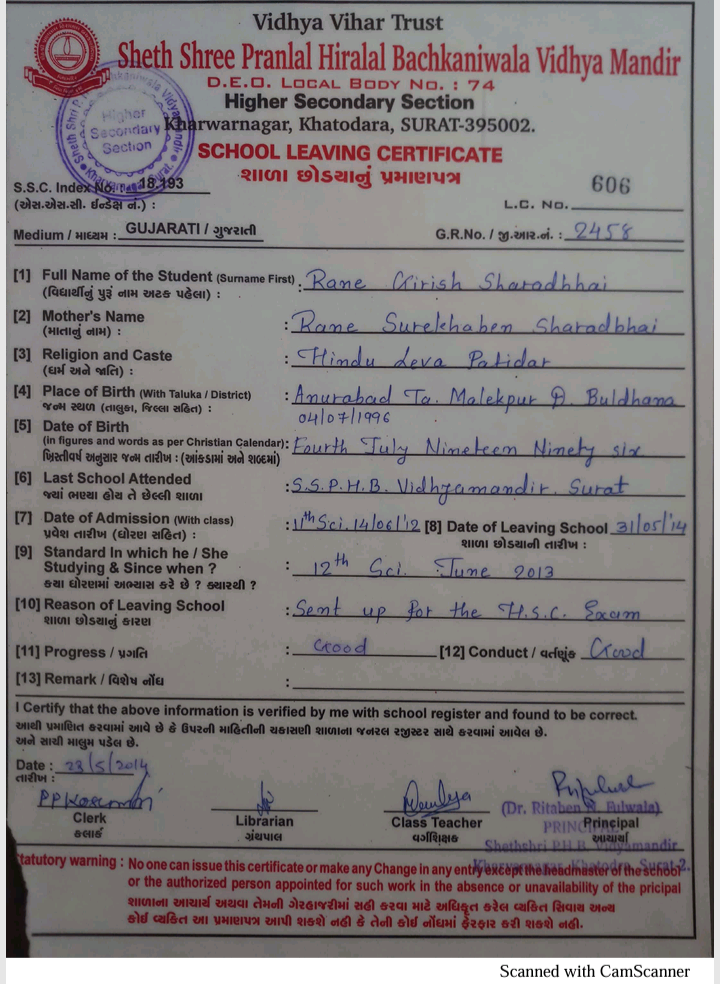 Vidhya Vihar Trust
Sheth Shree Pranlal Hiralal Bachkaniwala Vidhya Mandir
D.E.O. LOCAL BODY NO. : 74
Higher Secondary Section
Kharwarnagar, Khatodara, SURAT-395002.
Higher Secondary Section
SCHOOL LEAVING CERTIFICATE
શાળા છોડયાનું પ્રમાણપત્ર
S.S.C. Index No. : 18.193
(એસ.એસ.સી. ઈન્ડેક્ષ નં.) :
L.C. No. 606
Medium / માધ્યમ : GUJARATI / ગુજરાતી
G.R.No. / જી.આર.નં. : 2458
[1] Full Name of the Student (Surname First) : Rane Girish Sharadbhai
(વિદ્યાર્થીનું પુરૂં નામ અટક પહેલા) :
[2] Mother's Name : Rane Surekhaben Sharadbhai
(માતાનું નામ) :
[3] Religion and Caste : Hindu Leva Patidar
(ધર્મ અને જાતિ) :
[4] Place of Birth (With Taluka / District) : Anurabad Ta. Malekpur D. Buldhana
જન્મ સ્થળ (તાલુકા, જિલ્લા સહિત) :
04/07/1996
[5] Date of Birth
(in figures and words as per Christian Calendar): Fourth July Nineteen Ninety six
ખ્રિસ્તીવર્ષ અનુસાર જન્મ તારીખ : (આંકડામાં અને શબ્દમાં)
[6] Last School Attended : S.S.P.H.B. Vidhyamandir. Surat
જ્યાં ભણ્યા હોય તે છેલ્લી શાળા
[7] Date of Admission (With class) : 11th Sci. 14/06/'12 [8] Date of Leaving School 31/05/'14
પ્રવેશ તારીખ (ધોરણ સહિત) :
શાળા છોડયાની તારીખ :
[9] Standard In which he / She
Studying & Since when ? : 12th Sci. June 2013
કયા ધોરણમાં અભ્યાસ કરે છે ? ક્યારથી ?
[10] Reason of Leaving School : Sent up for the H.S.C. Exam
શાળા છોડયાનું કારણ
[11] Progress / પ્રગતિ : Good [12] Conduct / વર્તણૂંક Good
[13] Remark / વિશેષ નોંધ :
I Certify that the above information is verified by me with school register and found to be correct.
આથી પ્રમાણિત કરવામાં આવે છે કે ઉપરની માહિતીની ચકાસણી શાળાના જનરલ રજીસ્ટર સાથે કરવામાં આવેલ છે.
અને સાચી માલુમ પડેલ છે.
Date : 23/5/2014
તારીખ :
(Dr. Ritaben N. Fulwala)
PRINCIPAL
Clerk
કલાર્ક
Librarian
ગ્રંથપાલ
Class Teacher
વર્ગશિક્ષક
Principal
આચાર્ય
Shethshri P.H.B. Vidyamandir
Kharvarnagar, Khatodra, Surat-2.
Statutory warning : No one can issue this certificate or make any Change in any entry except the headmaster of the school
or the authorized person appointed for such work in the absence or unavailability of the pricipal
શાળાના આચાર્ય અથવા તેમની ગેરહાજરીમાં સહી કરવા માટે અધિકૃત કરેલ વ્યકિત સિવાય અન્ય
કોઈ વ્યકિત આ પ્રમાણપત્ર આપી શકશે નહી કે તેની કોઈ નોંધમાં ફેરફાર કરી શકશે નહી.
Scanned with CamScanner